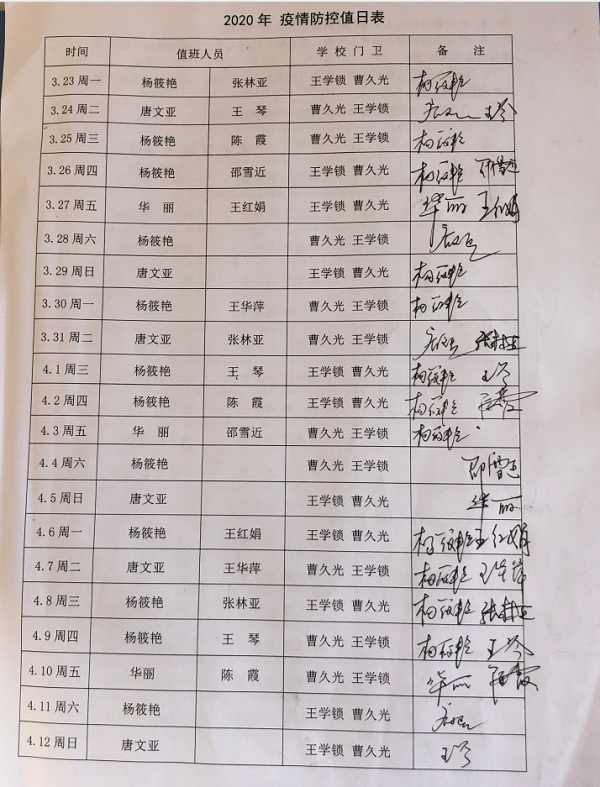 2020 年 疫情防控值日表
时间 值班人员 学 校 门 卫 备 注
3.23 周一 杨筱艳 张林亚 王学锁 曹久光 杨筱艳
3.24 周二 唐文亚 王 琴 曹久光 王学锁 王琴
3.25 周三 杨筱艳 陈 霞 王学锁 曹久光 杨筱艳
3.26 周四 杨筱艳 邵雪近 曹久光 王学锁 杨筱艳 邵雪近
3.27 周五 华 丽 王红娟 王学锁 曹久光 华丽 王红娟
3.28 周六 杨筱艳 曹久光 王学锁
3.29 周日 唐文亚 王学锁 曹久光 杨筱艳
3.30 周一 杨筱艳 王华萍 曹久光 王学锁 杨筱艳
3.31 周二 唐文亚 张林亚 王学锁 曹久光 张林亚
4.1 周三 杨筱艳 王 琴 曹久光 王学锁 杨筱艳 王琴
4.2 周四 杨筱艳 陈 霞 王学锁 曹久光 杨筱艳 陈霞
4.3 周五 华 丽 邵雪近 曹久光 王学锁 杨筱艳
4.4 周六 杨筱艳 曹久光 王学锁 邵雪近
4.5 周日 唐文亚 王学锁 曹久光 华丽
4.6 周一 杨筱艳 王红娟 曹久光 王学锁 杨筱艳 王红娟
4.7 周二 唐文亚 王华萍 王学锁 曹久光 杨筱艳 王华萍
4.8 周三 杨筱艳 张林亚 王学锁 曹久光 杨筱艳 张林亚
4.9 周四 杨筱艳 王 琴 曹久光 王学锁 杨筱艳 王琴
4.10 周五 华丽 陈 霞 曹久光 王学锁 华丽 陈霞
4.11 周六 杨筱艳 曹久光 王学锁
4.12 周日 唐文亚 王学锁 曹久光 王琴